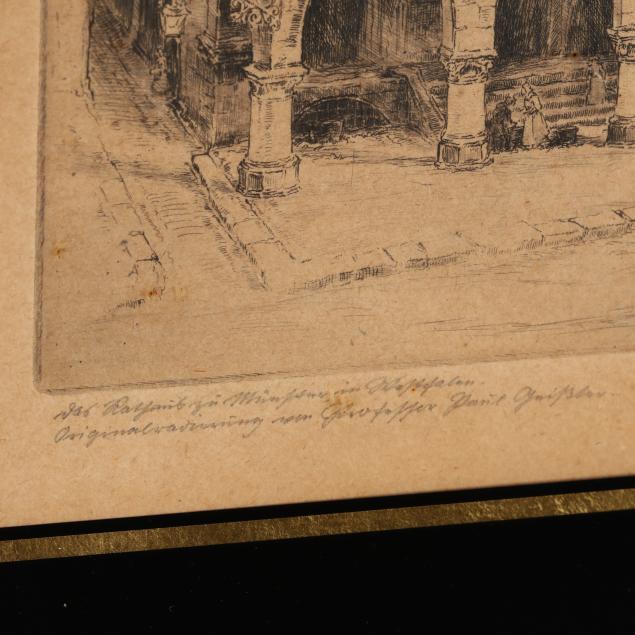 Das Rathaus zu Münster in Westfalen.
Originalradierung von Professor Paul Geißler.